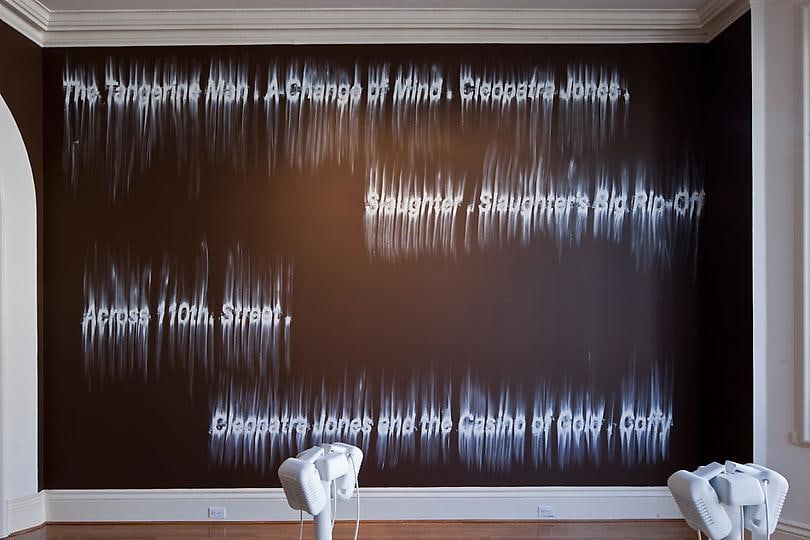 The Tangerine Man . A Change of Mind . Cleopatra Jones .
Slaughter . Slaughter's Big Rip-Off
Across 110th. Street .
Cleopatra Jones and the Casino of Gold . Coffy